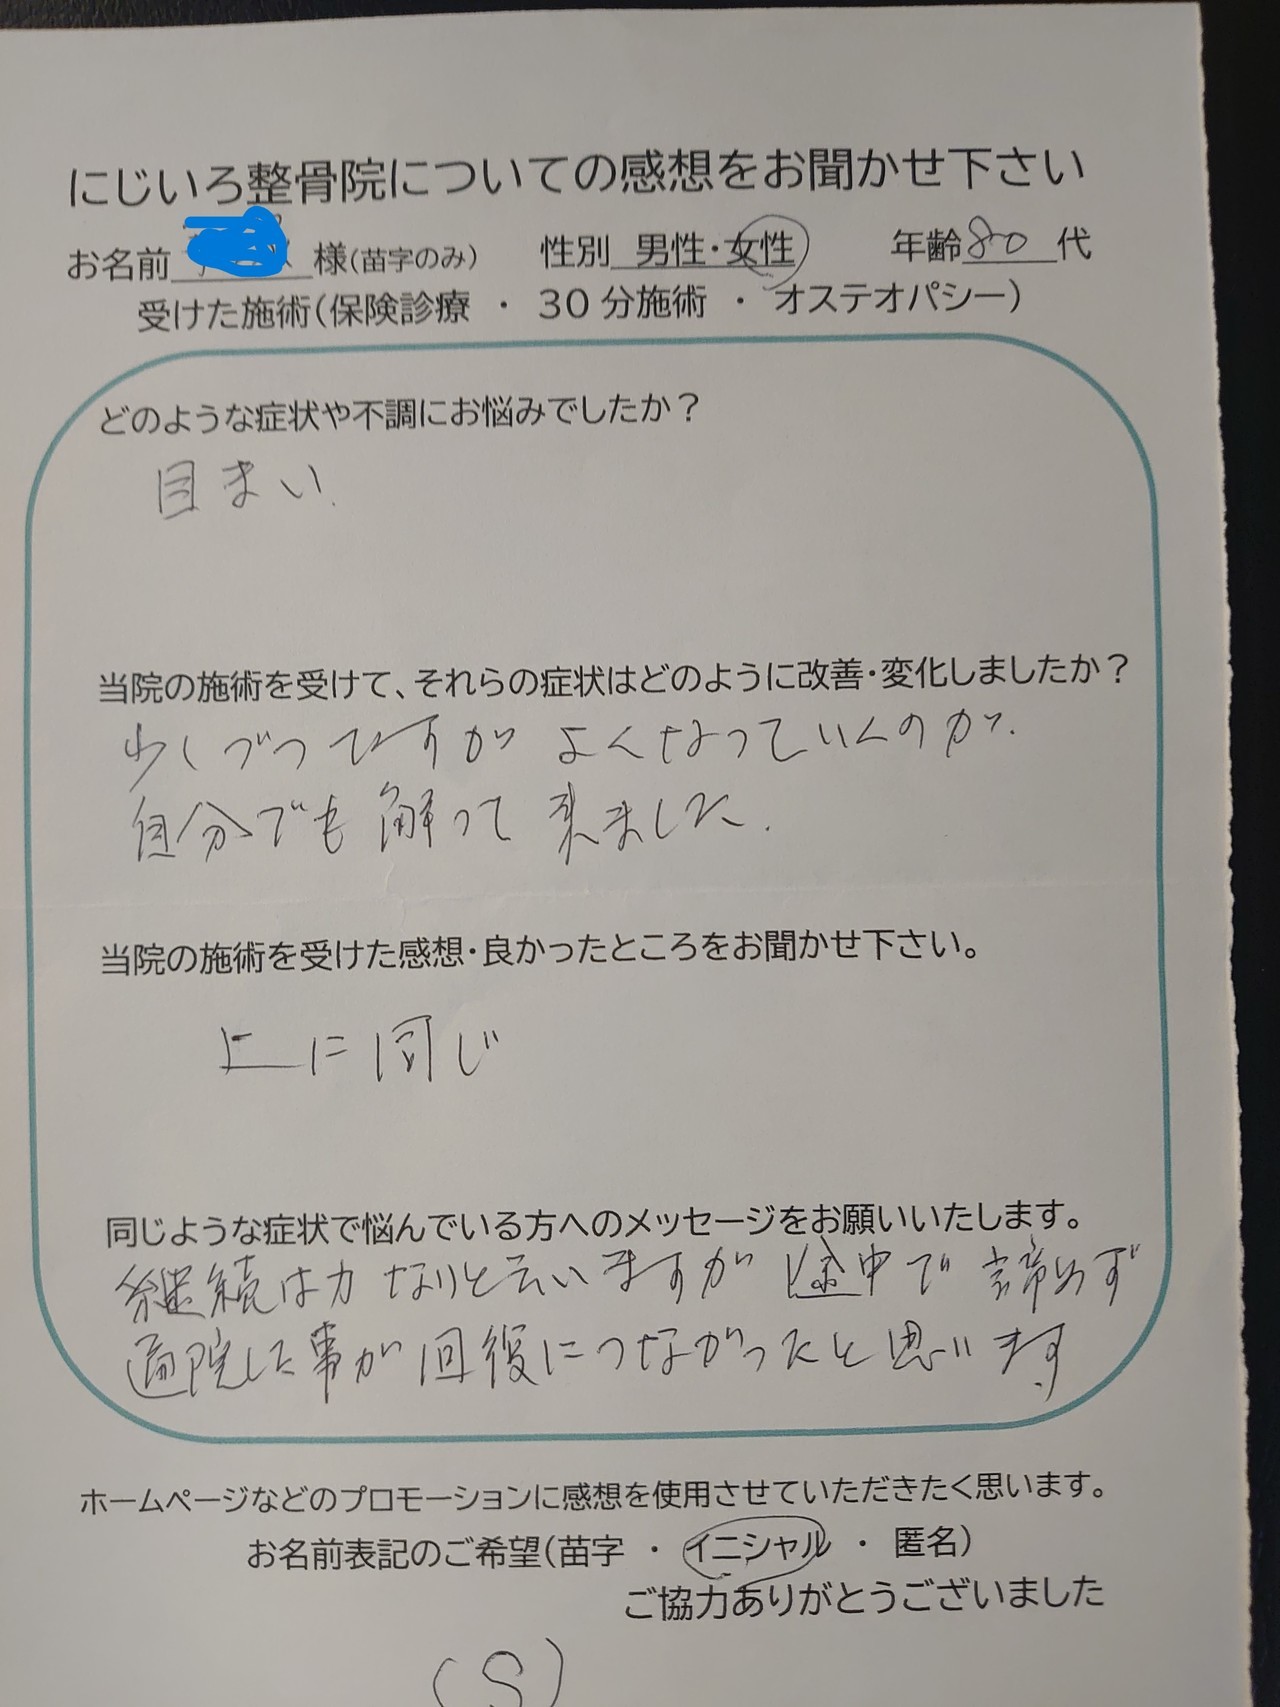 にじいろ整骨院についての感想をお聞かせ下さい
お名前 様(苗字のみ) 性別 男性・女性 年齢 80 代
受けた施術(保険診療 ・ 30分施術 ・ オステオパシー)
どのような症状や不調にお悩みでしたか？
目まい.
当院の施術を受けて、それらの症状はどのように改善・変化しましたか？
少しづつですが よくなっていくのが.
自分でも解って来ました.
当院の施術を受けた感想・良かったところをお聞かせ下さい。
上に同じ
同じような症状で悩んでいる方へのメッセージをお願いいたします。
継続は力なりと云いますが途中で諦めず
通院した事が回復につながったと思います
ホームページなどのプロモーションに感想を使用させていただきたく思います。
お名前表記のご希望(苗字 ・ イニシャル ・ 匿名)
ご協力ありがとうございました
(S)